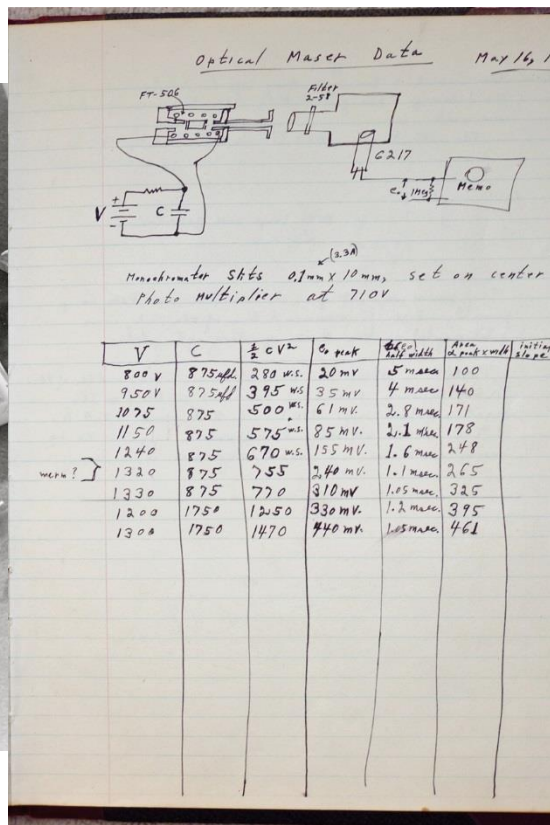 Optical Maser Data May 16, 1
FT-506
Filter
2-58
6217
V + - C
e. 1Meg Memo
(3.3A)
Monochromator Slits 0.1mm x 10mm, set on center
Photo Multiplier at 710V
V C ½ CV² e. peak half width Area α peak x width initial slope
800V 875μfd 280 w.s. 20mv 5 msec 100
950V 875μfd 395 w.s 35mv 4 msec 140
1075 875 500 w.s. 61 mv. 2.8 msec 171
1150 875 575 w.s. 85 mv. 2.1 msec 178
1240 875 670 w.s. 155 mv. 1.6 msec 248
1320 875 755 240 mv. 1.1 msec. 265
1330 875 770 310 mv 1.05 msec. 325
1200 1750 1250 330 mv. 1.2 msec. 395
1300 1750 1470 440 mv. 1.05 msec. 461